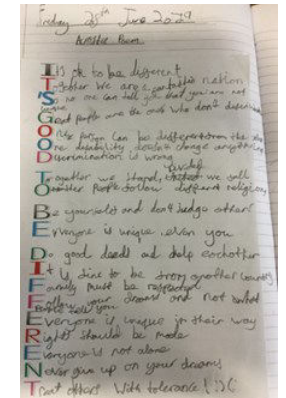 Friday 28th June 2029
Acrostic Poem
It's ok to be different
Together we are a fantastic nation
So no one can tell you that you are not
unique
Great people are the ones who don't
One person can be different from the
One disability doesn't change anything
Discrimination is wrong
Together we stand, divided we fall
people follow different religions
Be yourself and don't judge others
Everyone is unique, even you
Do good deeds and help eachother
It is fine to be from another country
Family must be respected
Follow your dreams and not
tell you
Everyone is unique in their way
Rights should be made
Everyone is not alone
Never give up on your dreams
Treat others with tolerance